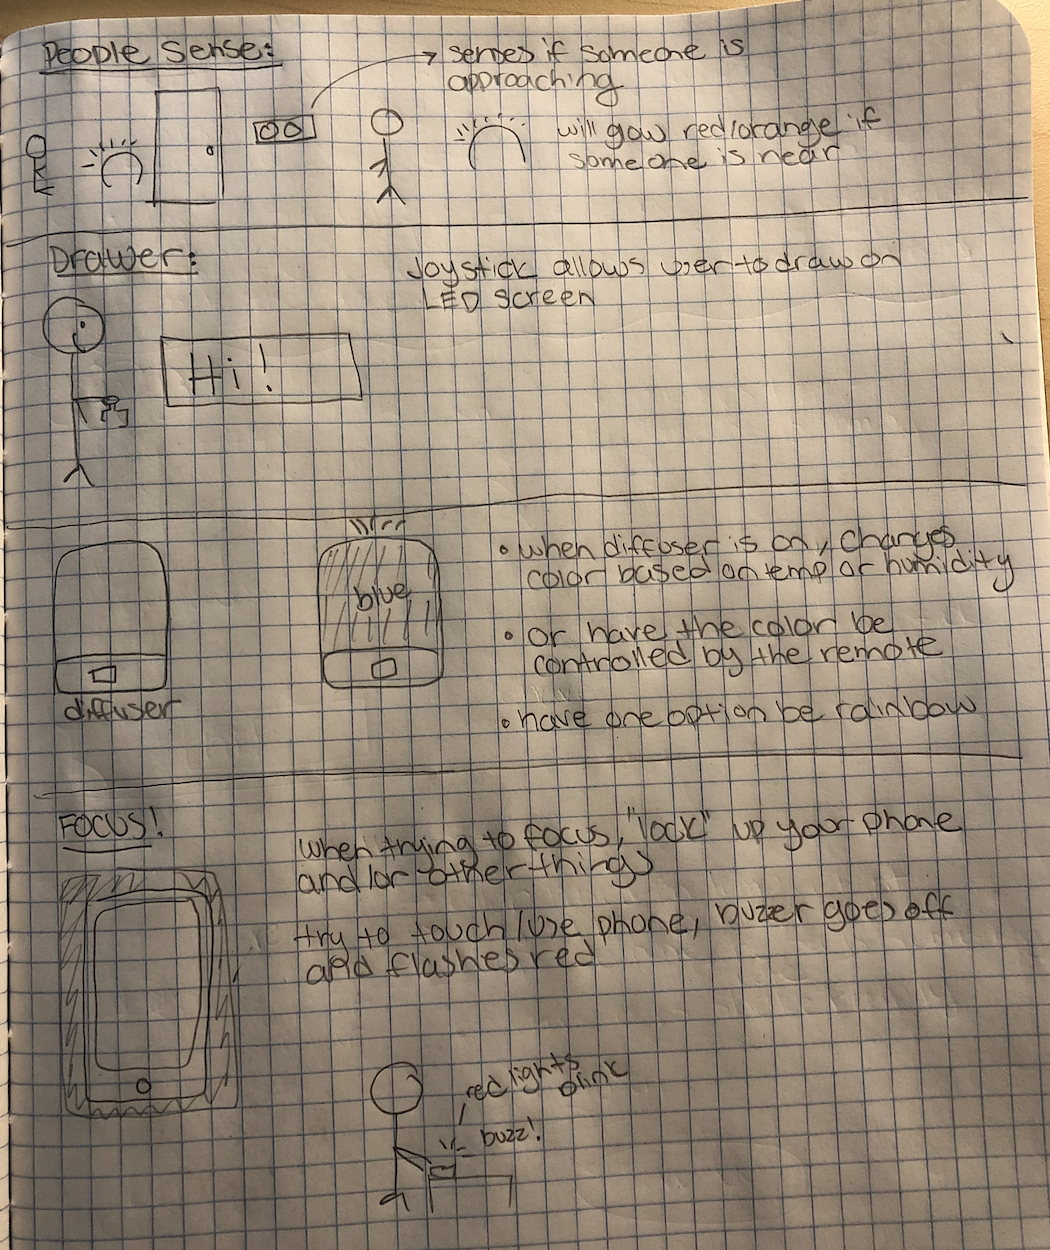 People Sense:
senses if someone is
approaching
will gow red/orange if
someone is near
Drawer:
Joystick allows user to draw on
LED screen
Hi!
blue
diffuser
• when diffuser is on, changes
color based on temp or humidity
• or have the color be
controlled by the remote
• have one option be rainbow
FOCUS!
when trying to focus, "lock" up your phone
and/or other things
try to touch/use phone, buzzer goes off
and flashes red
red lights
blink
buzz!